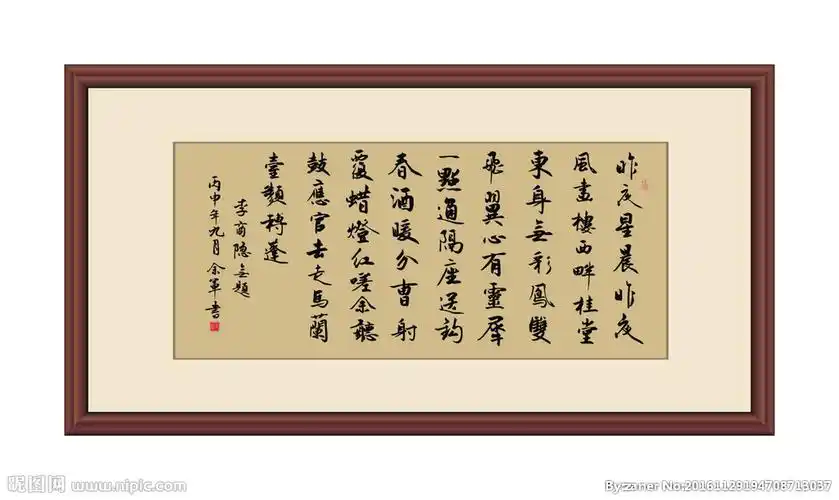 昨夜星晨昨夜
風畫樓西畔桂堂
東身無彩鳳雙
飛翼心有靈犀
一點通隔座送鈎
春酒暖分曹射
覆蜡燈红嗟余聽
鼓應官去走馬蘭
臺類轉蓬
李商隐無題
丙申年九月余軍書
昵图网 www.nipic.com
By:zaner No:20161129194708713037